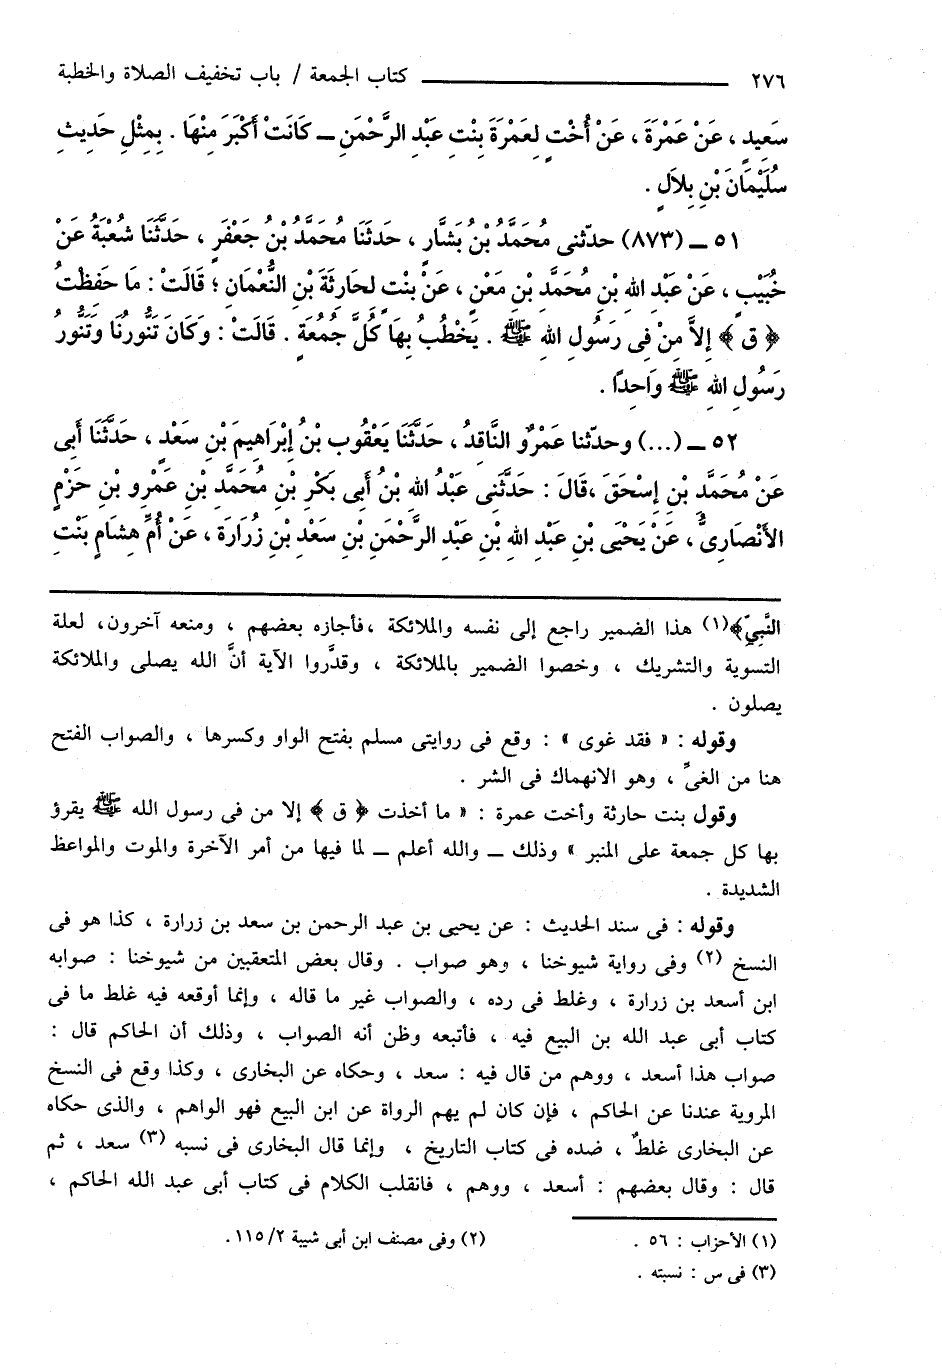 ٢٧٦ كتاب الجمعة / باب تخفيف الصلاة والخطبة
سَعِيدٍ ، عَنْ عَمْرَةَ ، عَنْ أُخْتٍ لِعَمْرَةَ بِنْتِ عَبْدِ الرَّحْمَنِ ــ كَانَتْ أَكْبَرَ مِنْهَا . بِمِثْلِ حَدِيثِ
سُلَيْمَانَ بْنِ بِلاَلٍ .
٥١ ــ (٨٧٣) حدّثنى مُحَمَّدُ بْنُ بَشَّارٍ ، حَدَّثَنَا مُحَمَّدُ بْنُ جَعْفَرٍ ، حَدَّثَنَا شُعْبَةُ عَنْ
خُبَيْبٍ ، عَنْ عَبْدِ اللهِ بْنِ مُحَمَّدِ بْنِ مَعْنٍ ، عَنْ بِنْتٍ لِحَارِثَةَ بْنِ النُّعْمَانِ ؛ قَالَتْ : مَا حَفِظْتُ
﴿ ق ﴾ إِلاَّ مِنْ فِى رَسُولِ اللهِ ﷺ . يَخْطُبُ بِهَا كُلَّ جُمُعَةٍ . قَالَتْ : وَكَانَ تَنُّورُنَا وَتَنُّورُ
رَسُولِ اللهِ ﷺ وَاحِدًا .
٥٢ ــ (...) وحدّثنا عَمْرٌو النَّاقِدُ ، حَدَّثَنَا يَعْقُوبُ بْنُ إِبْرَاهِيمَ بْنِ سَعْدٍ ، حَدَّثَنَا أَبِى
عَنْ مُحَمَّدِ بْنِ إِسْحَقَ ،قَالَ : حَدَّثَنِى عَبْدُ اللهِ بْنُ أَبِى بَكْرِ بْنِ مُحَمَّدِ بْنِ عَمْرِو بْنِ حَزْمٍ
الأَنْصَارِىُّ ، عَنْ يَحْيَى بْنِ عَبْدِ اللهِ بْنِ عَبْدِ الرَّحْمَنِ بْنِ سَعْدِ بْنِ زُرَارَةَ ، عَنْ أُمِّ هِشَامٍ بِنْتِ
النَّبِيِّ﴾(١) هذا الضمير راجع إلى نفسه والملائكة ،فأجازه بعضهم ، ومنعه آخرون، لعلة
التسوية والتشريك ، وخصوا الضمير بالملائكة ، وقدَّروا الآية أنَّ الله يصلى والملائكة
يصلون .
وقوله : « فقد غوى » : وقع فى روايتى مسلم بفتح الواو وكسرها ، والصواب الفتح
هنا من الغىِّ ، وهو الانهماك فى الشر .
وقول بنت حارثة وأخت عمرة : « ما أخذت ﴿ ق ﴾ إلا من فى رسول الله ﷺ يقرؤ
بها كل جمعة على المنبر » وذلك ــ والله أعلم ــ لما فيها من أمر الآخرة والموت والمواعظ
الشديدة .
وقوله : فى سند الحديث : عن يحيى بن عبد الرحمن بن سعد بن زرارة ، كذا هو فى
النسخ (٢) وفى رواية شيوخنا ، وهو صواب . وقال بعض المتعقبين من شيوخنا : صوابه
ابن أسعد بن زرارة ، وغلط فى رده ، والصواب غير ما قاله ، وإنما أوقعه فيه غلط ما فى
كتاب أبى عبد الله بن البيع فيه ، فأتبعه وظن أنه الصواب ، وذلك أن الحاكم قال :
صواب هذا أسعد ، ووهم من قال فيه : سعد ، وحكاه عن البخارى ، وكذا وقع فى النسخ
المروية عندنا عن الحاكم ، فإن كان لم يهم الرواة عن ابن البيع فهو الواهم ، والذى حكاه
عن البخارى غلطٌ ، ضده فى كتاب التاريخ ، وإنما قال البخارى فى نسبه (٣) سعد ، ثم
قال : وقال بعضهم : أسعد ، ووهم ، فانقلب الكلام فى كتاب أبى عبد الله الحاكم ،
(١) الأحزاب : ٥٦ . (٢) وفى مصنف ابن أبى شيبة ١١٥/٢.
(٣) فى س : نسبته .